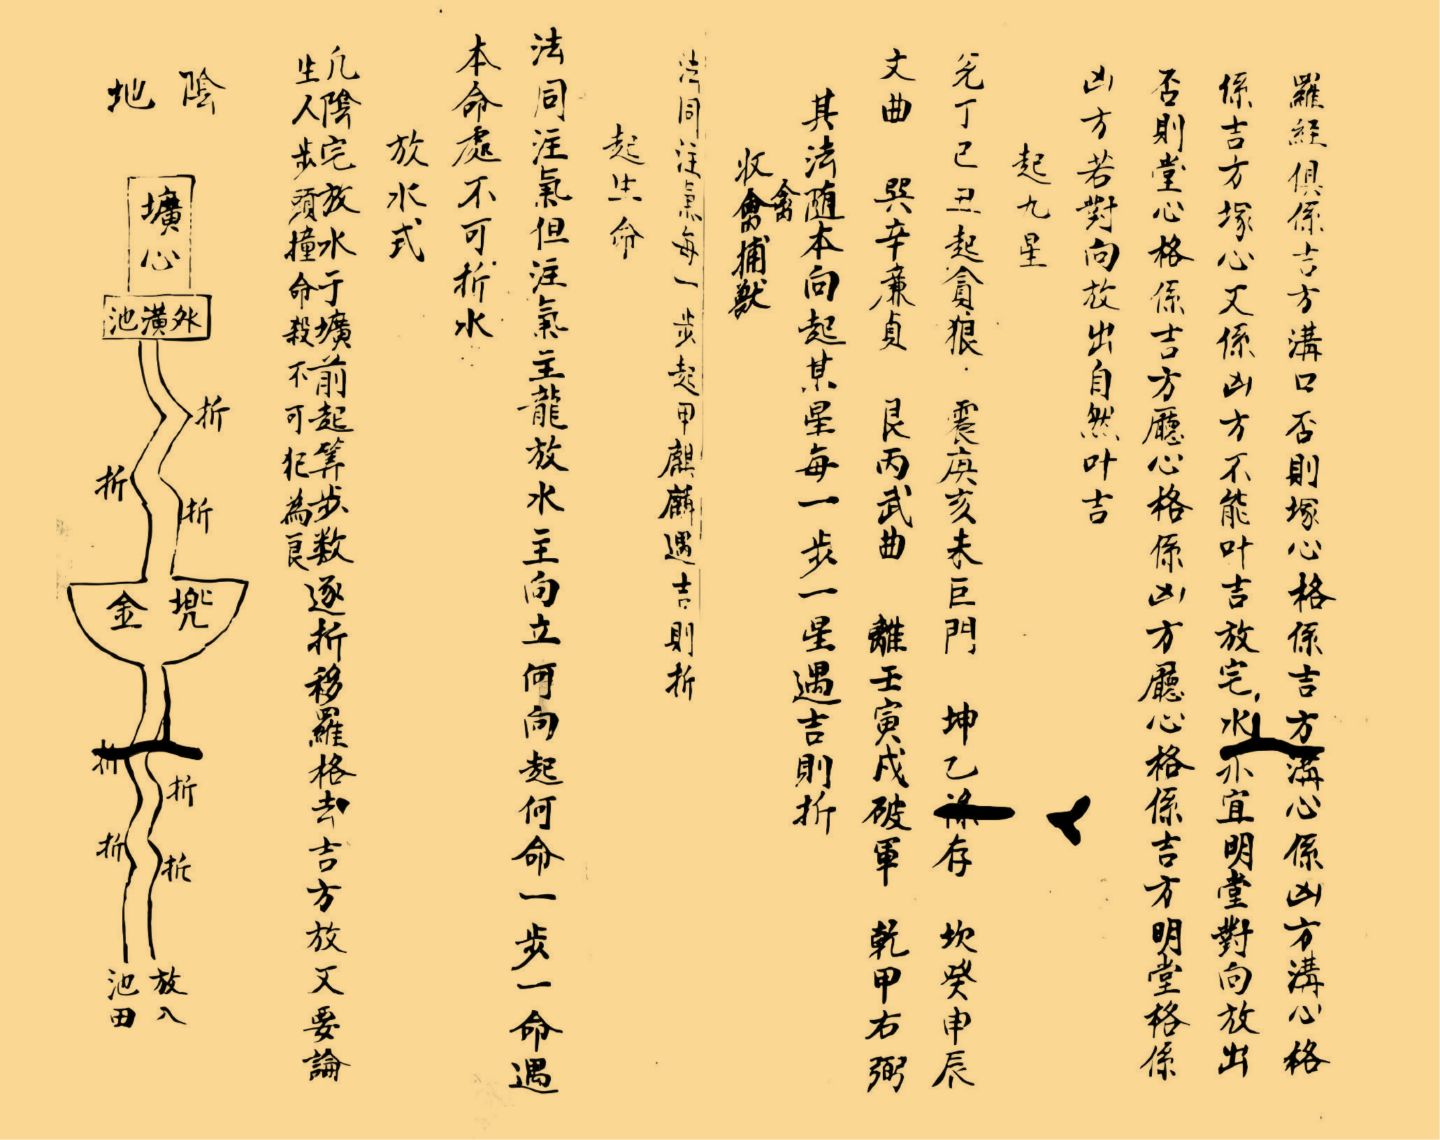 羅經俱係吉方溝口否則塚心格係吉方溝心係凶方溝心格
係吉方塚心又係凶方不能叶吉放宅水亦宜明堂對向放出
否則堂心格係吉方廳心格係凶方廳心格係吉方明堂格係
凶方若對向放出自然叶吉
起九星
兌丁巳丑起貪狼 震庚亥未巨門 坤乙祿存 坎癸申辰
文曲 巽辛廉貞 艮丙武曲 離壬寅戌破軍 乾甲右弼
其法随本向起某星每一步一星遇吉則折
收禽捕獸
禽
法同注氣每一步起甲麒麟遇吉則折
起生命
法同注氣但注氣主龍放水主向立何向起何命一步一命遇
本命處不可折水
放水式
凡陰宅放水于壙前起筭步数逐折移羅格去吉方放又要論
生人步頭撞命殺不可犯為良
陰地
壙心
外潢池
折
折
折
金兜
折
折
折
折
放入
池田